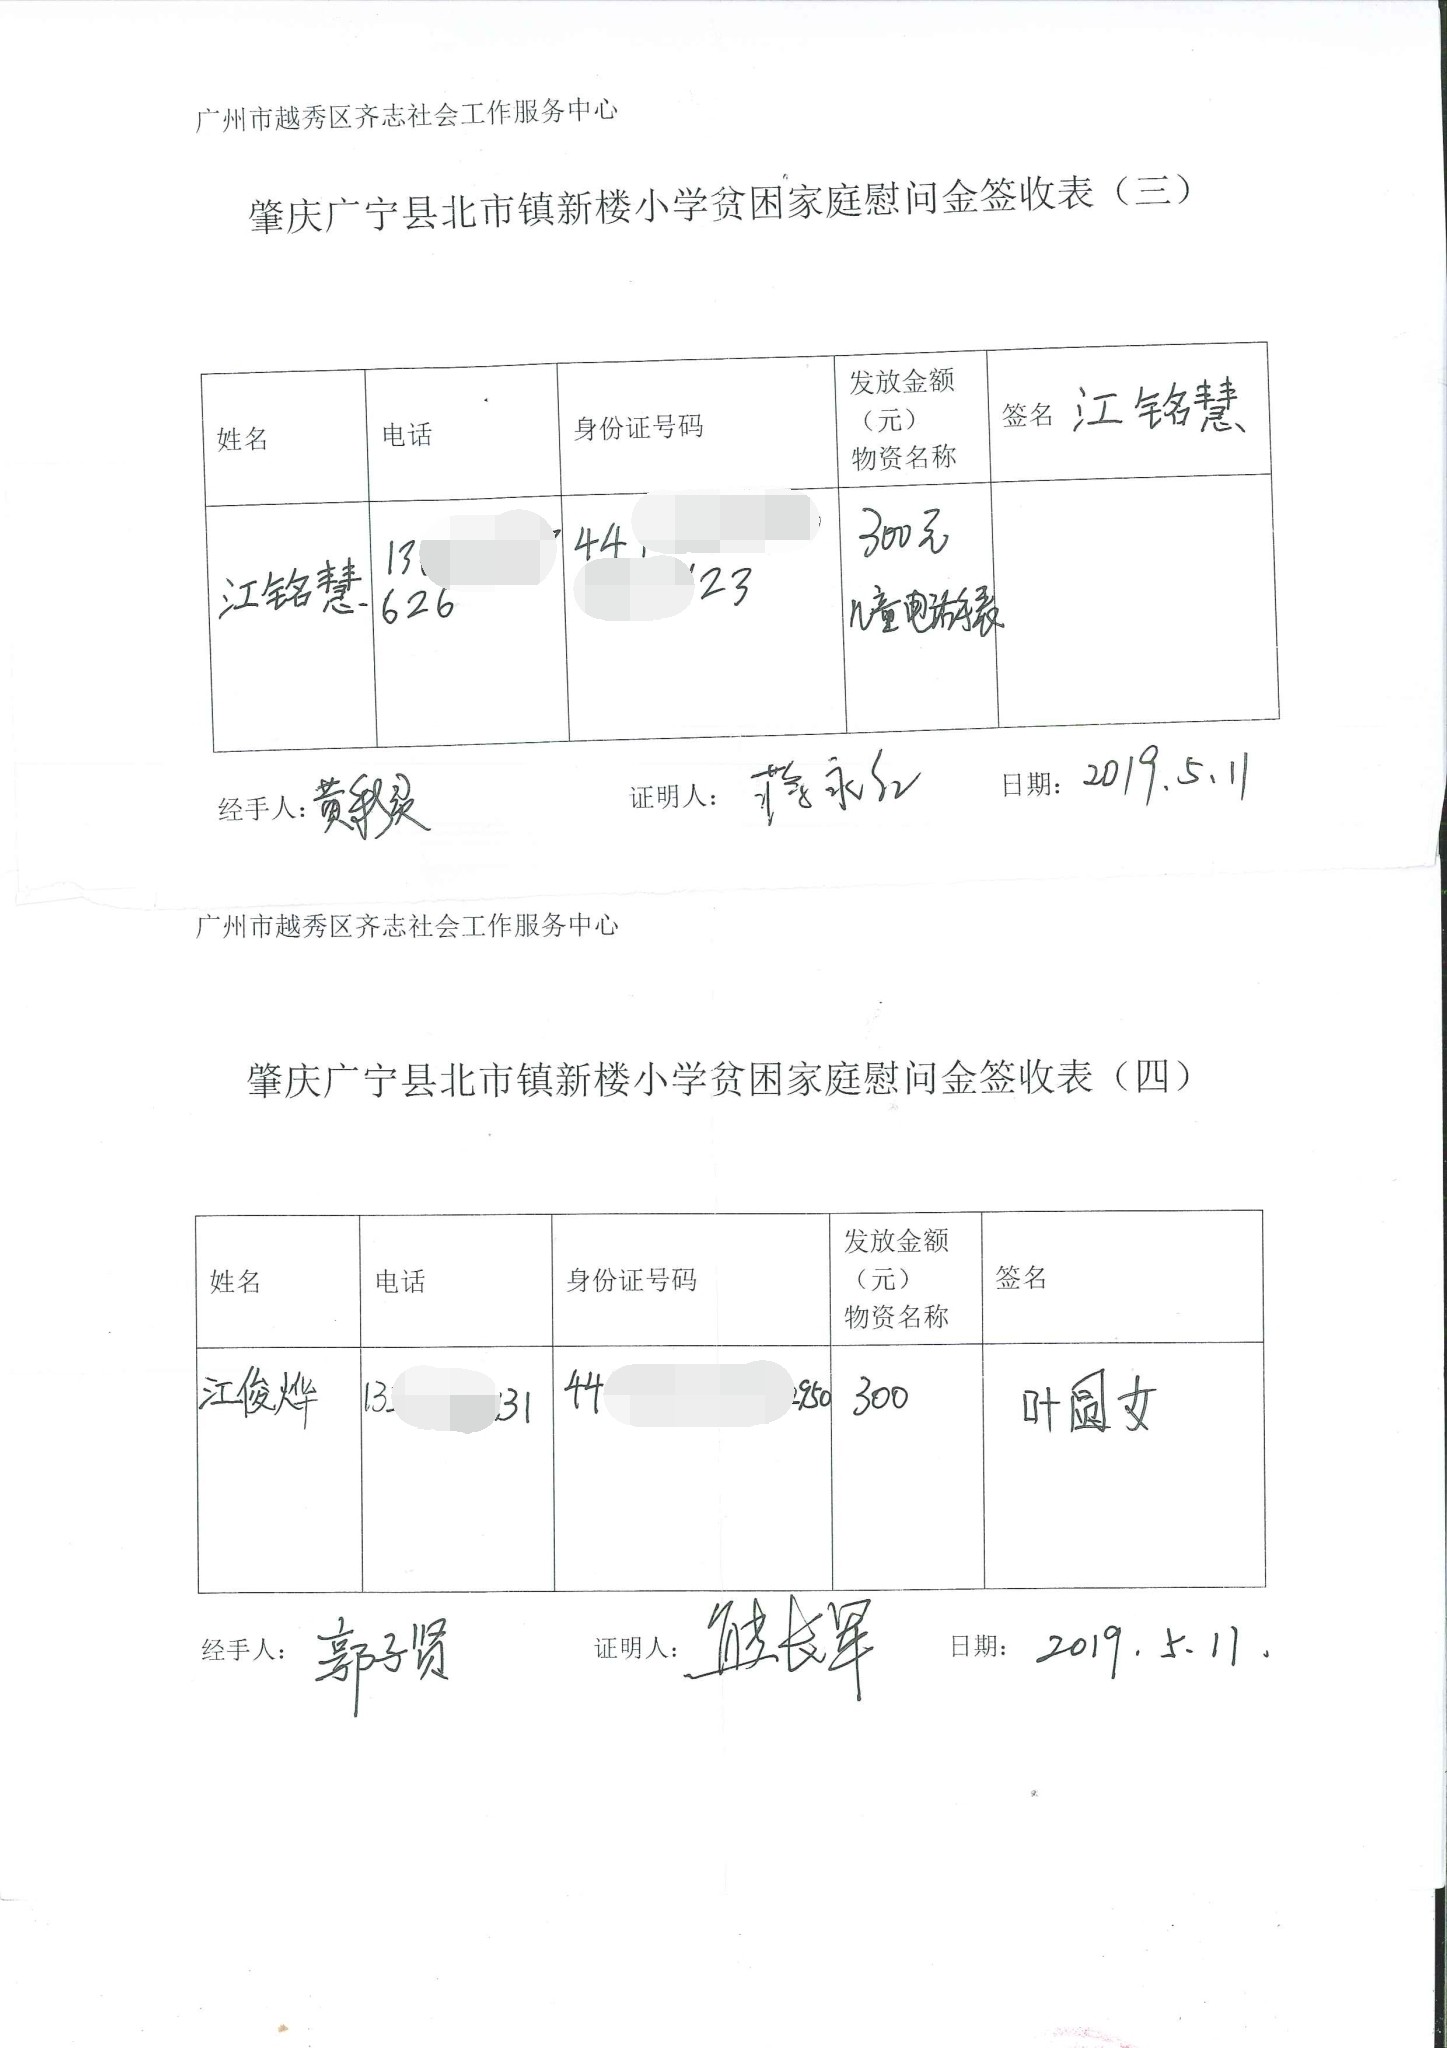 广州市越秀区齐志社会工作服务中心
肇庆广宁县北市镇新楼小学贫困家庭慰问金签收表（三）
姓名 电话 身份证号码 发放金额（元）物资名称 签名 江铭慧
江铭慧 13 626 44 23 300元 儿童电话手表
经手人： 证明人：蒋永红 日期：2019.5.11
广州市越秀区齐志社会工作服务中心
肇庆广宁县北市镇新楼小学贫困家庭慰问金签收表（四）
姓名 电话 身份证号码 发放金额（元）物资名称 签名
江俊烨 13 31 44 950 300 叶圆女
经手人：郭子贤 证明人：熊长军 日期：2019.5.11.